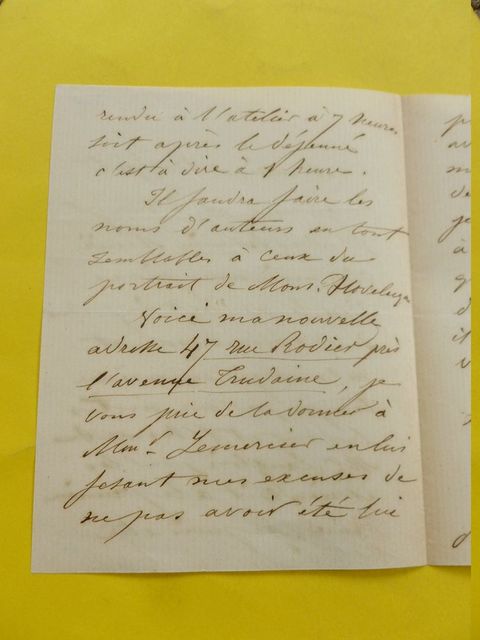 rendu à l'atelier à 7 heures
soit après le déjeuné
c'est à dire à 1 heure.
Il faudra faire les
noms d'auteurs en tout
semblables à ceux du
portrait de Mons.
Voici ma nouvelle
adresse 47 rue Rodier près
l'avenue Trudaine, je
vous prie de la donner à
Monr. Lemercier en lui
fesant mes excuses de
ne pas avoir été lui